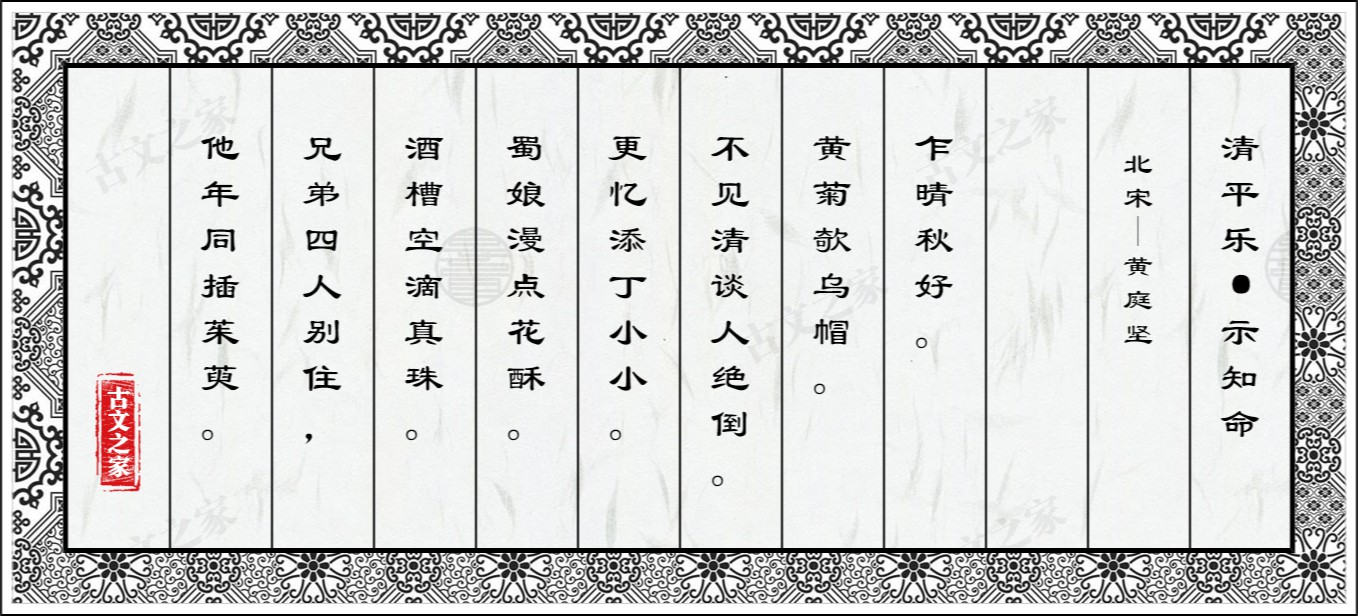 清平乐●示知命
北宋——黄庭坚
乍晴秋好。
黄菊欹乌帽。
不见清谈人绝倒。
更忆添丁小小。
蜀娘漫点花酥。
酒槽空滴真珠。
兄弟四人别住，
他年同插茱萸。
古文之家